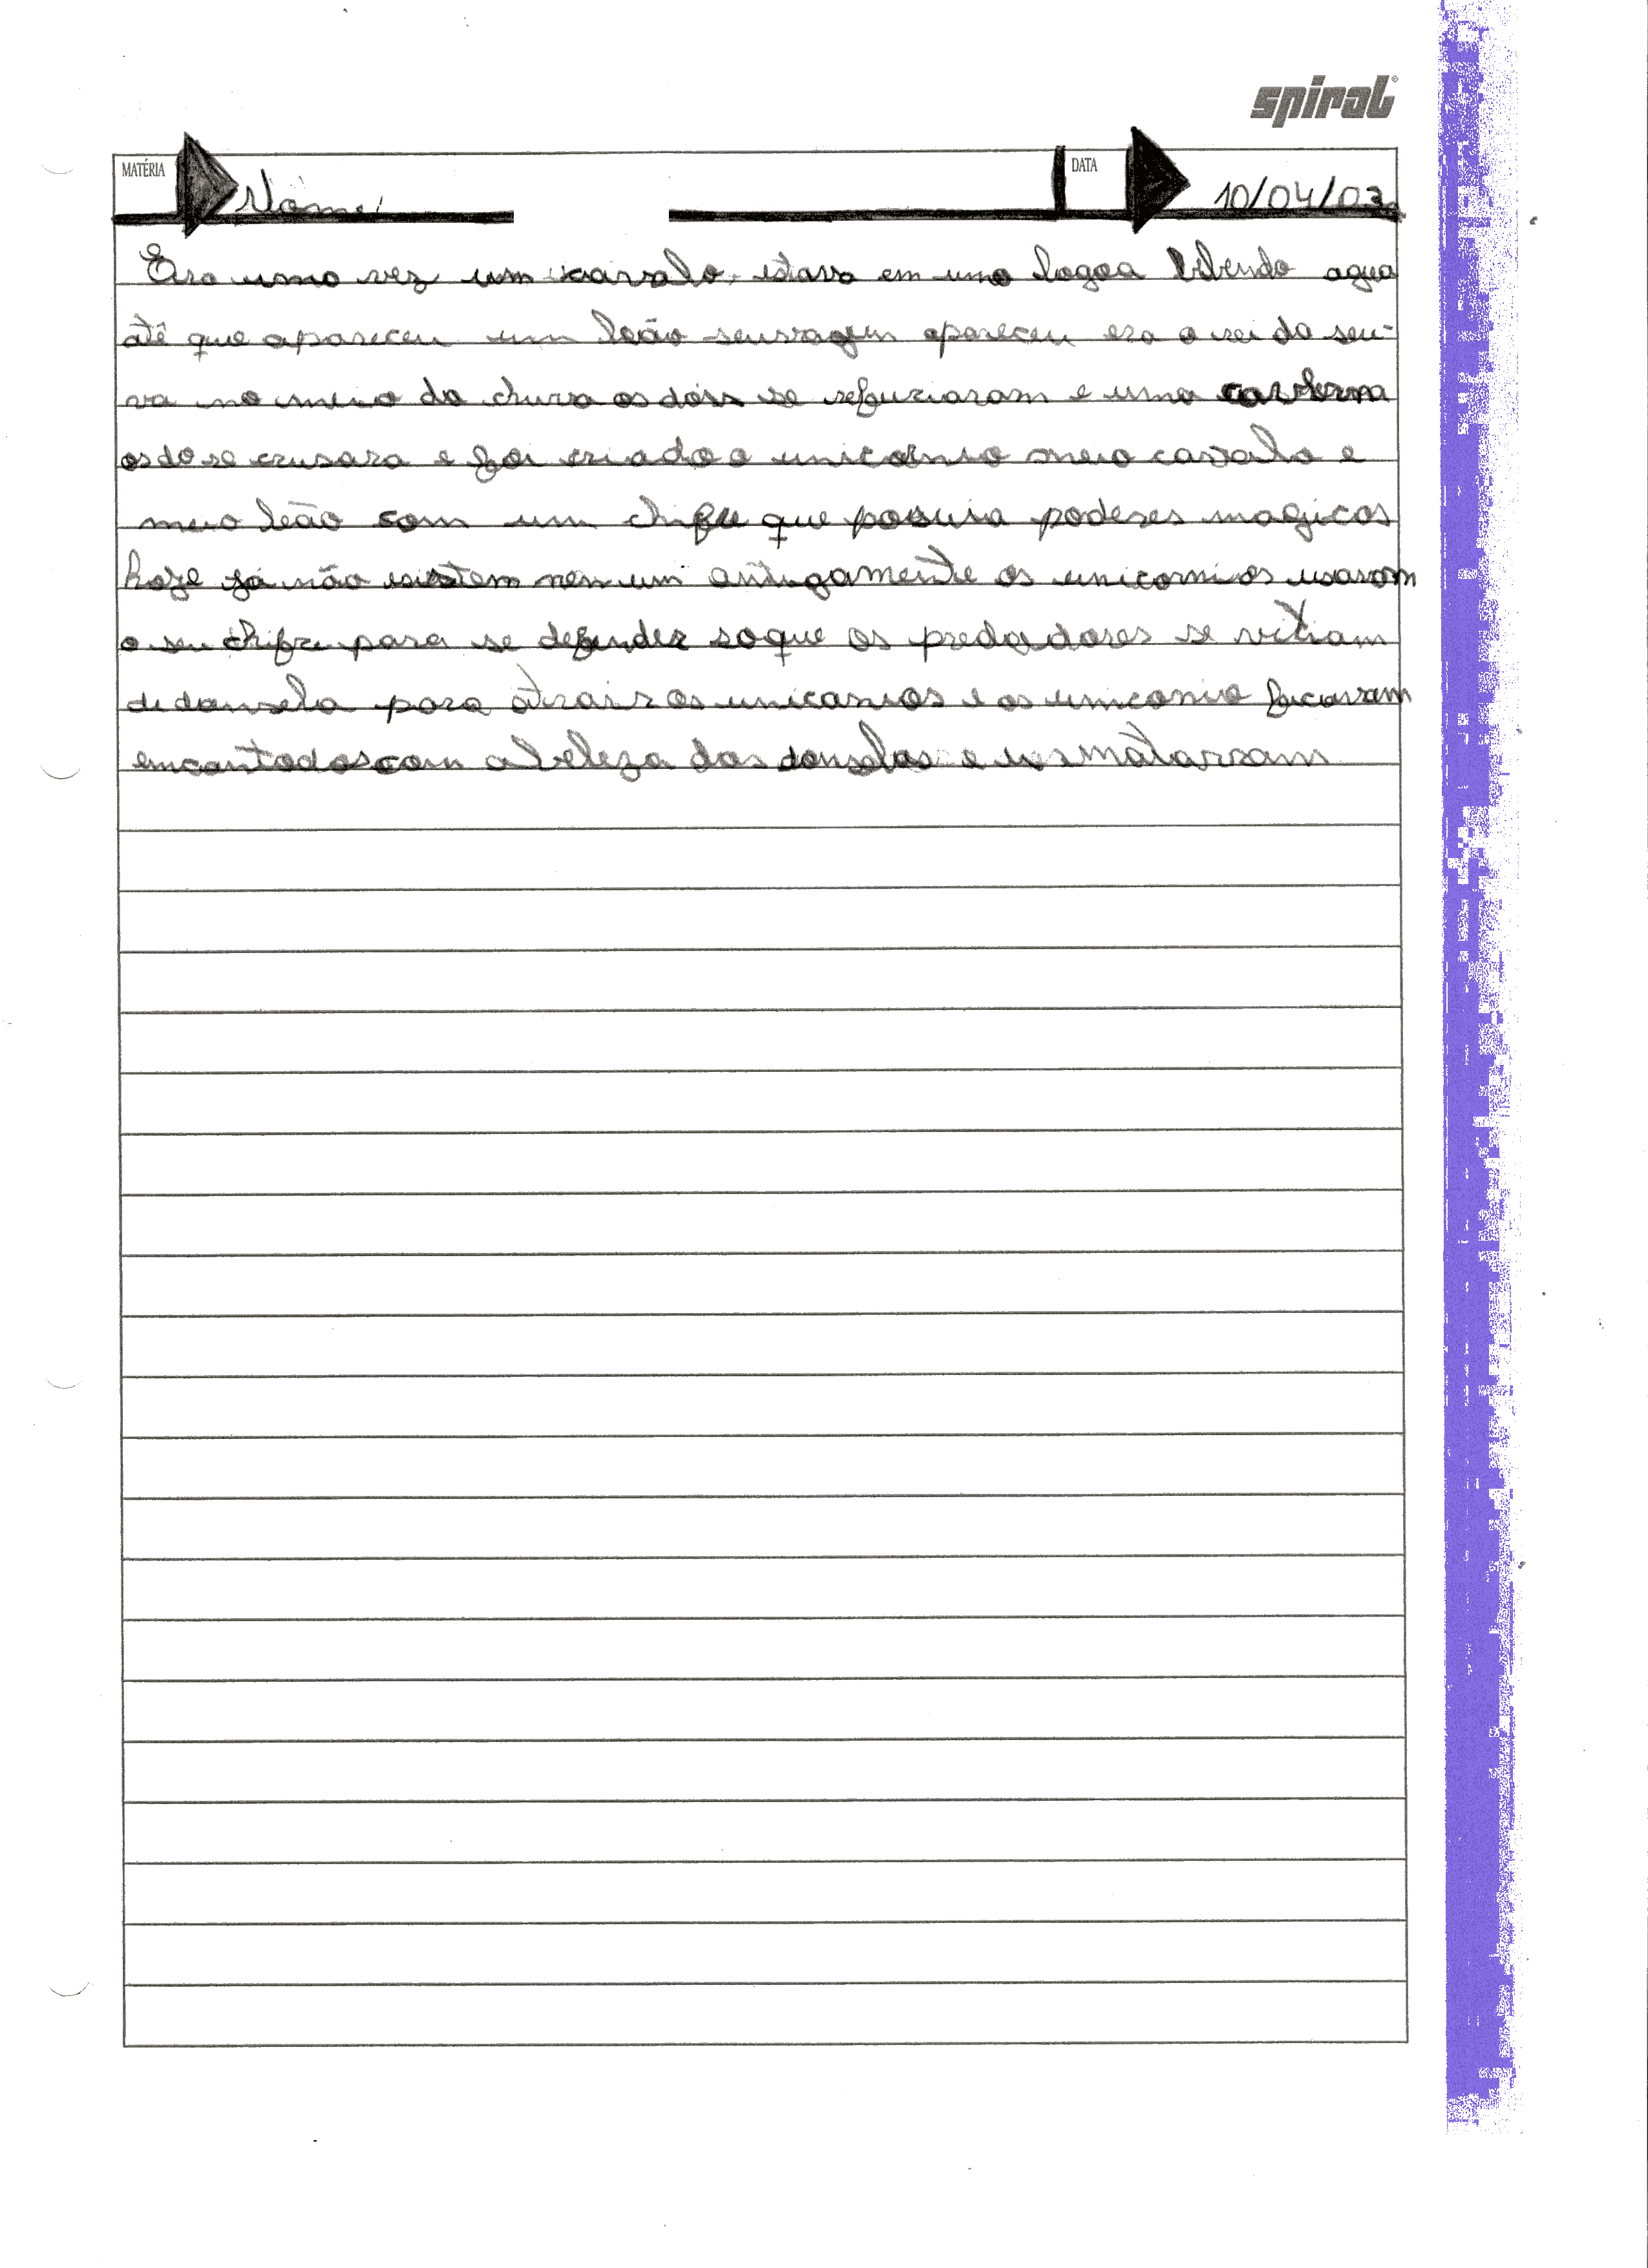 spiral
MATÉRIA Nome: DATA 10/04/03
Era uma vez um cavalo, estava em uma lagoa bibendo agua
atê que apareceu um leão seuvagem apareceu era o rei da seu-
va no meio da chuva os dois se refugiaram e uma caverna
os do se crusara e foi criado o unicornio meio cavalo e
meio leão com um chifre que posuia poderes magicos
hoze ja não existem nem um antigamente os unicornios usavam
o seu chifre para se defender so que os predadores se vitiam
de donsela para atrair os unicanios e os uniconio ficavam
encantados com a beleza das donselas e os matarram